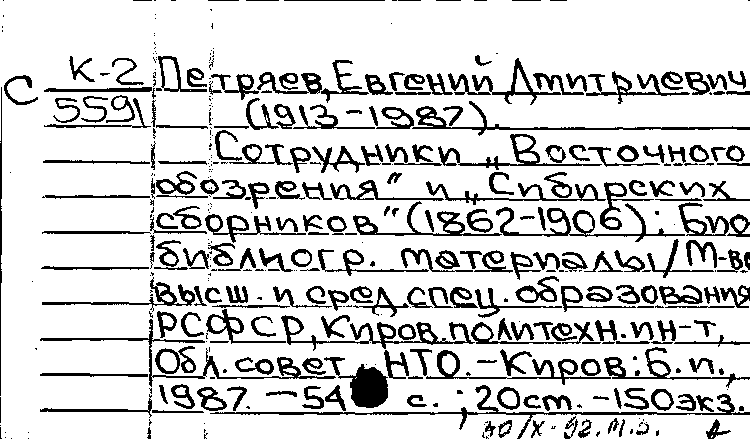 С К-2 Петряев, Евгений Дмитриевич
5591 (1913-1987).
Сотрудники „Восточного
обозрения" и „Сибирских
сборников" (1862-1906): Био
библиогр. материалы/М-во
высш. и сред. спец. образования
РСФСР, Киров. политехн. ин-т,
Обл. совет НТО. - Киров: Б. и.,
1987. - 54 с. ; 20 cm. - 150 экз.
30/X-92.